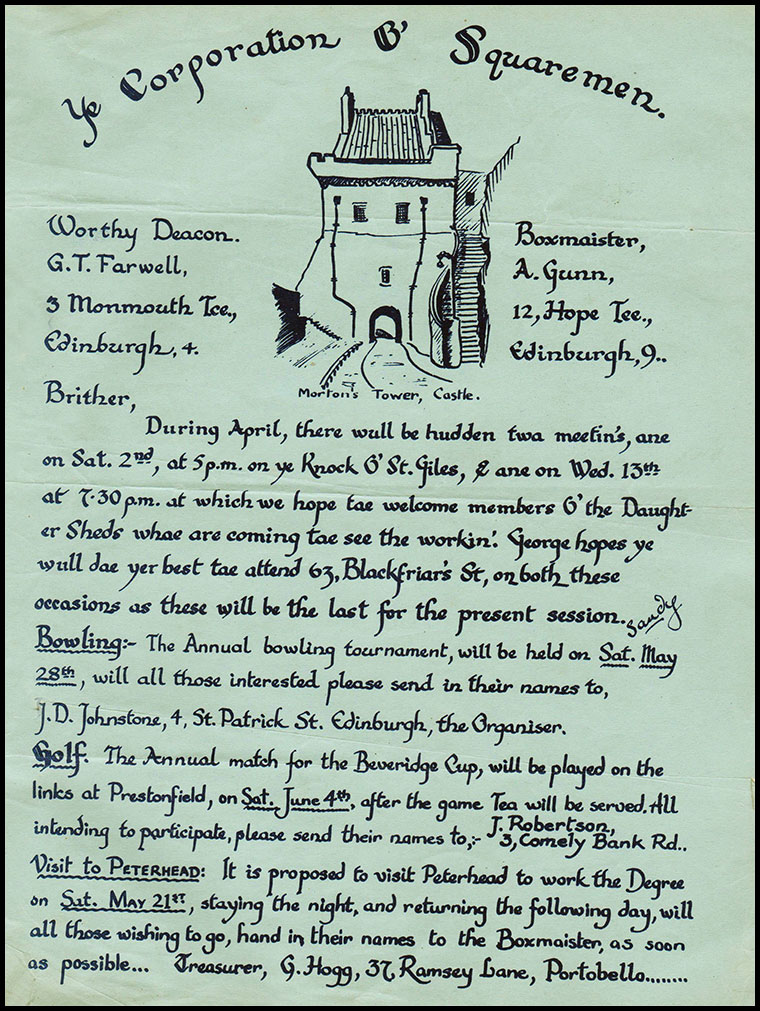 Ye Corporation O' Squaremen.
Worthy Deacon.
G.T. Farwell,
3 Monmouth Tce.,
Edinburgh, 4.
Boxmaister,
A. Gunn,
12, Hope Tee.,
Edinburgh, 9..
Morton's Tower, Castle.
Brither,
During April, there wull be hudden twa meetin's, ane
on Sat. 2nd, at 5p.m. on ye Knock O' St. Giles, & ane on Wed. 13th
at 7·30 p.m. at which we hope tae welcome members O' the Daught-
er Sheds whae are coming tae see the workin'. George hopes ye
wull dae yer best tae attend 63, Blackfriar's St, on both these
occasions as these will be the last for the present session. Sandy
Bowling:- The Annual bowling tournament, will be held on Sat. May
28th, will all those interested please send in their names to,
J.D. Johnstone, 4, St. Patrick St. Edinburgh, the Organiser.
Golf. The Annual match for the Beveridge Cup, will be played on the
links at Prestonfield, on Sat. June 4th, after the game Tea will be served. All
intending to participate, please send their names to,:- J. Robertson,
3, Comely Bank Rd..
Visit to Peterhead: It is proposed to visit Peterhead to work the Degree
on Sat. May 21st, staying the night, and returning the following day, will
all those wishing to go, hand in their names to the Boxmaister, as soon
as possible... Treasurer, G. Hogg, 37, Ramsey Lane, Portobello........